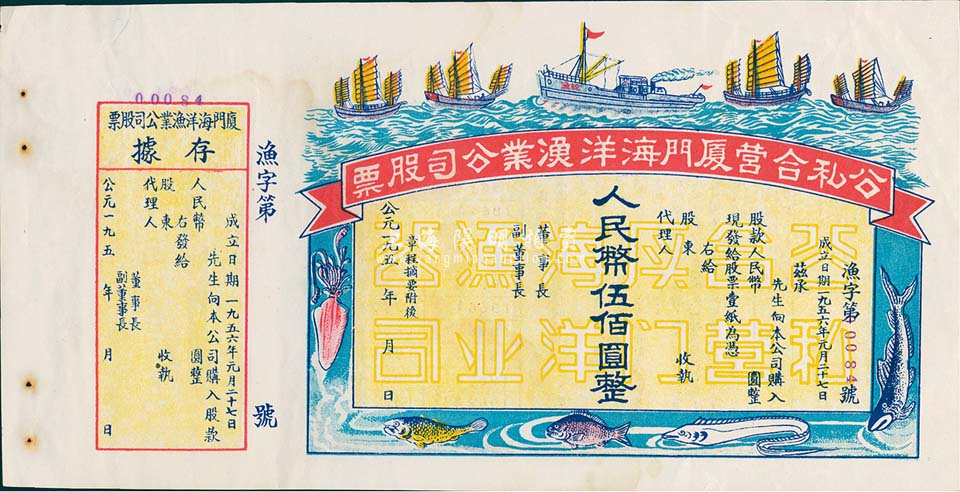 公私合营厦門海洋漁業公司股票
漁字第0084號
成立日期一九五六年元月二十七日
茲承
先生向本公司購入
股款人民幣 圓整
現發給股票壹紙為憑
右給
股東
代理人 收執
人民幣伍佰圓整
董事長
副董事長
章程摘要附後
公元一九五 年 月 日
公私合营厦门海洋渔业公司
漁字第 號
00084
厦門海洋漁業公司股票
存據
成立日期一九五六年元月二十七日
先生向本公司購入股款
人民幣 圓整
右發給
股東
代理人 收執
董事長
副董事長
公元一九五 年 月 日